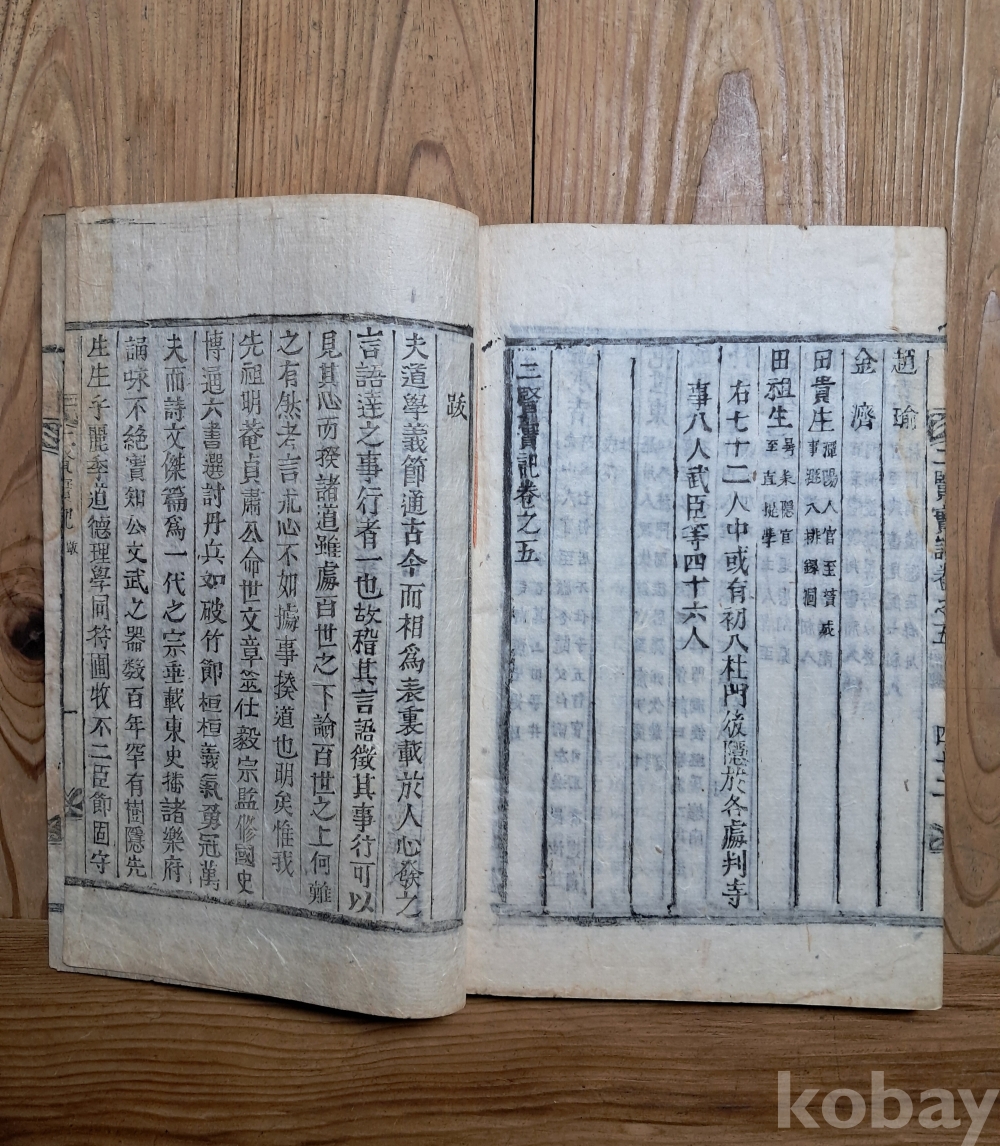 三賢實記卷之五 四十二
趙瑜
金濟
田貴生 潭陽人官至贊成
事遯入排錄洄
田祖生 号耒隱官
至直提學
右七十二人中或有初入杜門後隱於各處判寺
事八人武臣等四十六人
三賢實記卷之五
跋
夫道學義節通古今而相爲表裏載於人心發之
言語達之事行者一也故稽其言語徵其事行可以
見其心而揆諸道雖處百世之下論百世之上何難
之有然考言求心不如據事揆道也明矣惟我
先祖明菴貞肅公命世文章筮仕毅宗監修國史
博通六書選討丹兵如破竹節桓桓義氣勇冠萬
夫而詩文傑篇爲一代之宗垂載東史播諸樂府
誦咏不絶實知公文武之器数百年罕有樹隱先
生生乎麗季道德理學同符圃牧不二臣節固守
三賢實記 跋 一
kobay